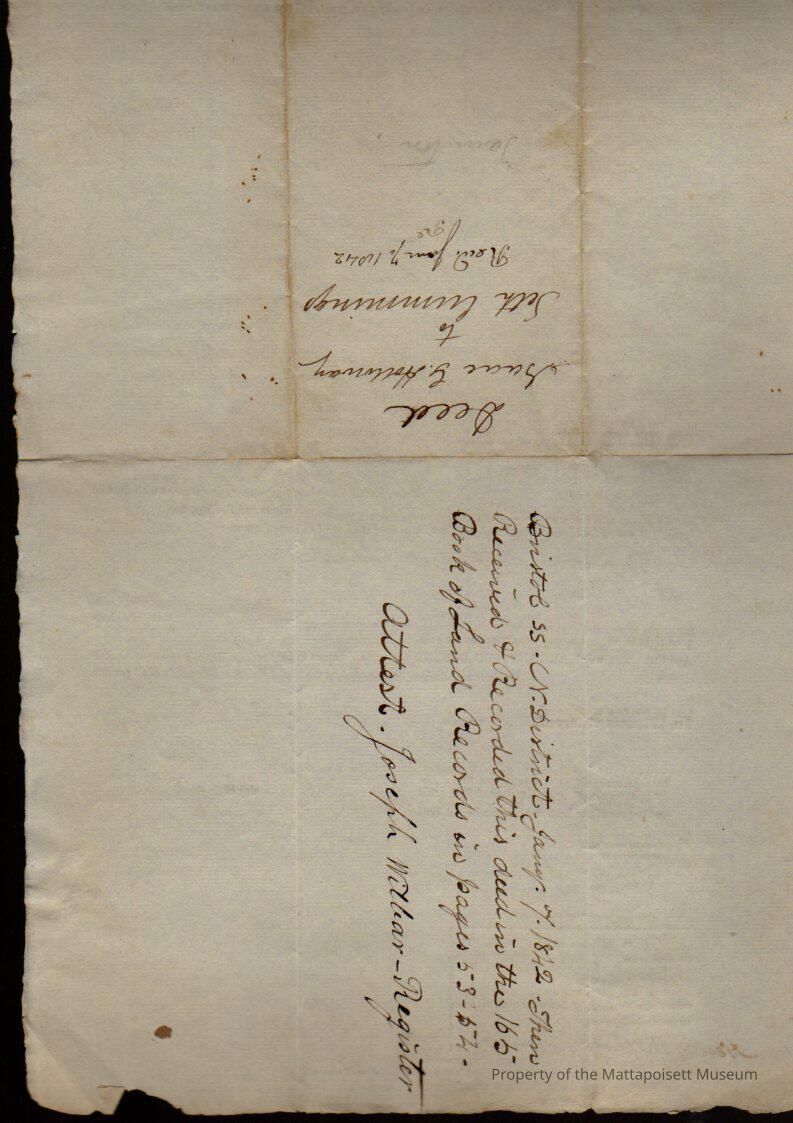 Deed
Isaac G. Holloway
to
Seth Cummings
Recd. Jany 7. 1842
Taunton
Bristol ss. N. District. Jany. 7. 1842. Then
Received & Recorded this deed in the 165
Book of Land Records in pages 53-54.
Attest. Joseph Wilbar - Register
Property of the Mattapoisett Museum